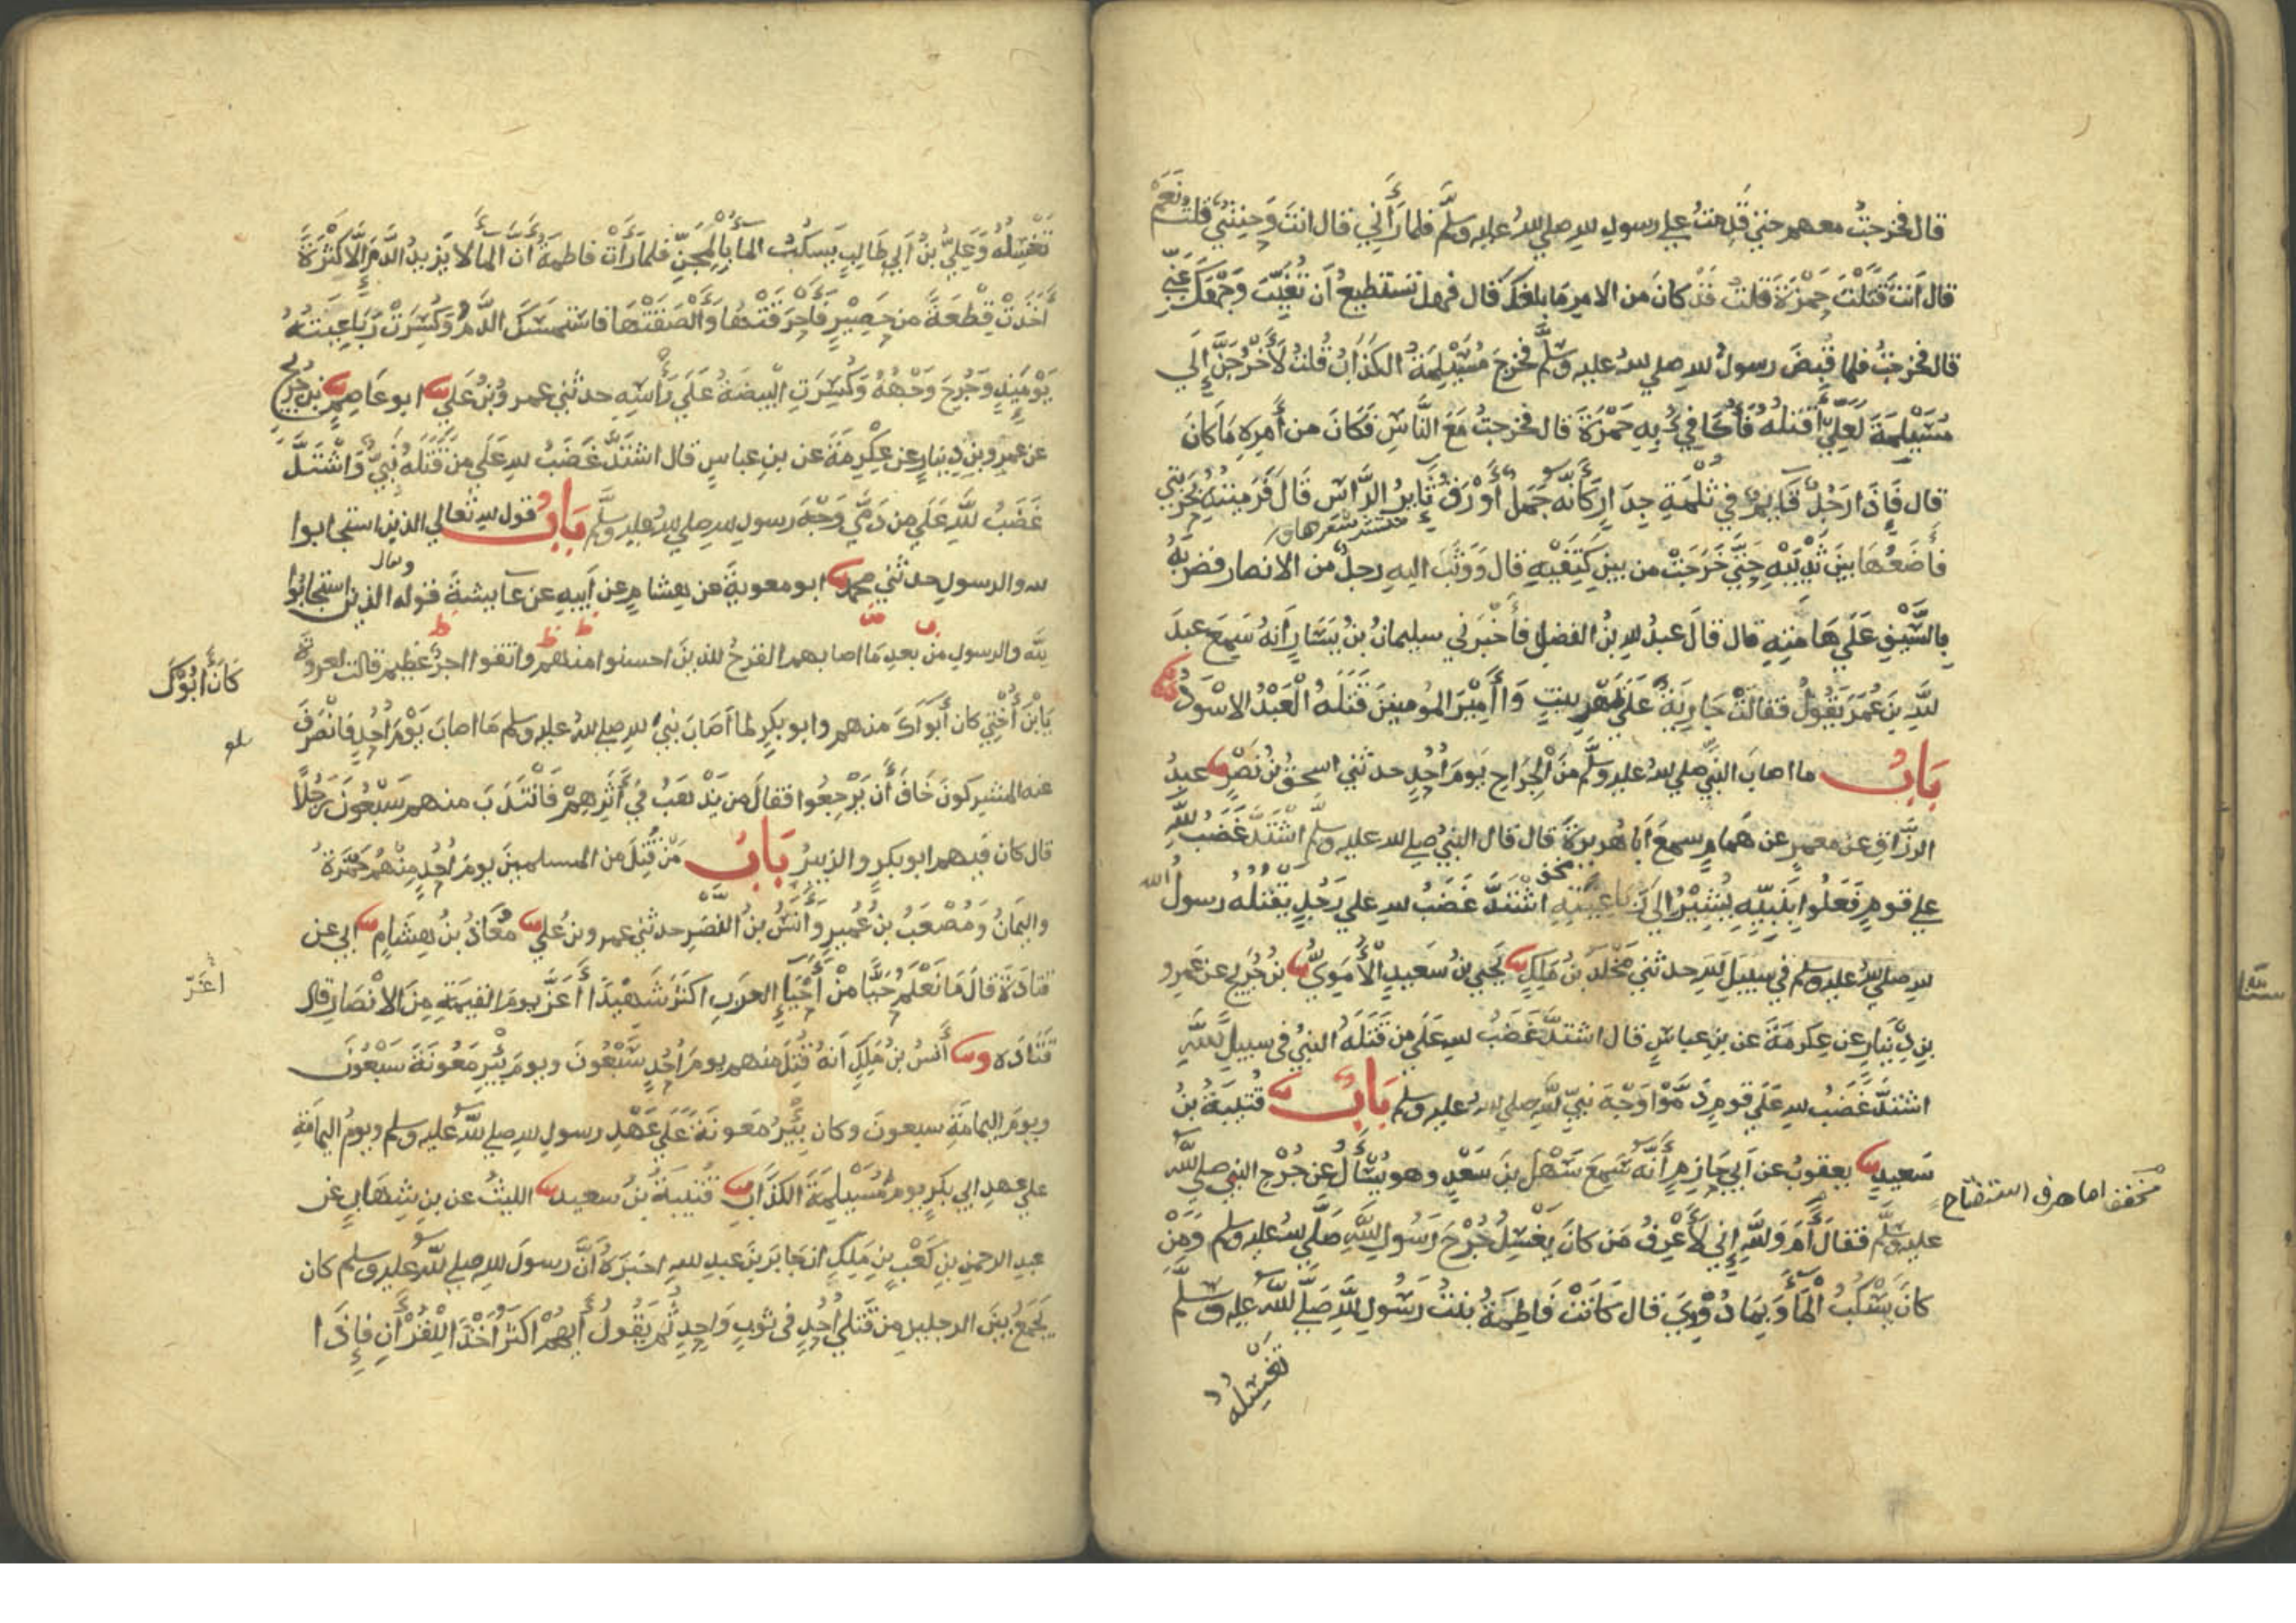 قال فخرجتُ معهم حتى قَدِمتُ على رسول الله صلى الله عليه وسلَّم فلما رَأَني قال انتَ وَحشِيٌّ قلتُ نَعَمْ
قال أنتَ قَتَلْتَ حَمْزَةَ قلتُ قَدْ كانَ من الامرِ مَا بلغكَ قال فهل تستطيعُ أن تُغَيِّبَ وَجْهَكَ عَنِّي
قال فخرجتُ فلما قُبِضَ رسولُ الله صلى الله عليه وسلَّم فخرَجَ مُسَيْلِمَةُ الكَذَّابُ قُلتُ لَأَخْرُجَنَّ إِلَى
مُسَيْلِمَةَ لَعَلِّي أَقتلُهُ فَأُكَافِيَ بِهِ حَمْزَةَ قال فخرجتُ مَعَ النَّاسِ فَكَانَ من أَمرِهِ مَا كَانَ
قال فَإِذَا رَجُلٌ قَائِمٌ في ثَلْمَةِ جِدَارٍ كَأَنَّهُ جَمَلٌ أَوْرَقُ ثَائِرُ الرَّأسِ قَالَ فَرَمَيتُهُ بِحَرْبَتِي
منتشر شعرها
فأَضَعُهَا بينَ ثَدْيَيْهِ حَتَّى خَرَجَتْ من بينِ كَتِفَيْهِ قال وَوَثَبَ اليهِ رجلٌ من الانصار فضربَهُ
بِالسَّيْفِ عَلَى هَامَتِهِ قال قالَ عبدُ اللهِ بنُ الفضلِ فأَخْبَرَني سليمانُ بنُ يَسَارٍ أنهُ سَمِعَ عبدَ
للهِ بنَ عُمَرَ يَقُولُ فقالتْ جَارِيَةٌ عَلَى ظَهْرِ بيتٍ وَا أَمِيْرَ المؤمنينَ قَتَلَهُ الْعَبْدُ الاسْوَدُ
بَابُ ما اصابَ النبيَّ صلى اللهُ عليه وسلَّم منَ الْجِرَاحِ يَومَ أُحُدٍ حدثني اسحقُ بنُ نَصْرٍ عبدُ
الرزَّاقِ عن معمرٍ عن هَمامٍ سمعَ أبا هُريرةَ قال قال النبيُّ صلى الله عليه وسلم اشتَدَّ غَضَبُ للهِ
على قومٍ فَعَلُوا بِنَبِيِّهِ يُشِيْرُ إلى رَبَاعِيَتِهِ اشْتَدَّ غَضَبُ لله على رَجُلٍ يَقْتُلُهُ رسولُ الله
لله صلى اللهُ عليه وسلم في سبيلِ للهِ حدثني مَخْلَدُ بنُ مَالِكٍ يَحيى بنُ سَعِيدٍ الْأُمَوِيُّ بنُ جُرَيجٍ عن عَمرِو
بنِ دِيْنَارٍ عن عِكرمَةَ عن بنِ عباسٍ قال اشتدَّ غَضَبُ لله عَلَى من قَتَلَهُ النبيُّ في سبيلِ للهِ
اشتدَّ غَضَبُ لله عَلَى قومٍ دَمَّوْا وَجْهَ نبيِّ للهِ صلى الله عليه وسلم بَابٌ قُتَيبَةُ بنُ
سَعيدٍ يعقوبُ عن أبي حَازِمٍ أَنَّهُ سَمِعَ سَهْلَ بنَ سَعْدٍ وهو يُسْأَلُ عن جُرْحِ النبي صلى الله
مخفف اما حرف استفتاح
عليه وسلَّم فقالَ أَمَ وَللهِ إِني لَأَعْرِفُ مَن كانَ يَغْسِلُ جُرْحَ رَسُولِ للهِ صَلَّى للهُ عليه وسلم وَمَنْ
كانَ يَسْكُبُ الْمَاءَ وَبِمَا دُوْوِيَ قال كَانَتْ فَاطِمَةُ بنتُ رَسُولِ للهِ صَلَّى للهُ عليه وسلَّم
تَغْسِلُهُ
تَغْسِلُهُ وَعَلِيُّ بنُ أبي طَالِبٍ يَسكُبُ الماءَ بِالْمِجَنِّ فلما رَأَتْ فاطمةُ أنَّ الماءَ لا يَزِيدُ الدَّمَ إِلَّا كَثْرَةً
أَخَذَتْ قِطْعَةً من حَصِيْرٍ فَأَحْرَقَتْهَا وَأَلْصَقَتْهَا فاستَمْسَكَ الدَّمُ وَكُسِرَتْ رَبَاعِيَتُهُ
يَوْمَئِذٍ وَجُرِحَ وَجْهُهُ وَكُسِرَتِ الْبَيضَةُ عَلَى رَأْسِهِ حدثني عمرو بنُ عَلي ابو عَاصِمٍ بنِ جُرَيجٍ
عن عمرِو بنِ دِينارٍ عن عِكْرِمَةَ عن بنِ عباسٍ قال اشتَدَّ غَضَبُ لله عَلَى من قَتَلَهُ نَبِيٌّ وَاشْتَدَّ
غَضَبُ للهِ عَلَى من دَمَّى وَجْهَ رسولِ للهِ صلى اللهُ عليه وسلَّم بَابُ قولِ لله تعالى الذين استجابوا
لله والرسولِ حدثني محمد ابو معويةَ عن هشامٍ عن أَبِيهِ عن عايشةَ قوله الذين استجابُوا
للهِ والرسولِ من بعدِ مَا اصابهم القرحُ للذينَ احسنوا منهم واتقوا اجرٌ عظيم قالت لعروةَ
كَانَ أَبُوكَ
يَا بْنَ أُخْتِي كان أَبَوَاكَ منهم وابو بكرٍ لما اَصَابَ نبيَّ لله صلى للهُ عليه وسلم مَا اصابَ يَوْمَ أُحُدٍ فانْصَرَفَ
عنه المشركونَ خَافَ أَن يَرْجِعُوا فقالَ من يَذْهَبُ في أَثَرِهِمْ فَانْتَدَبَ منهم سَبْعُونَ رَجُلًا
قال كان فيهم ابو بكرٍ والزبيرُ بَابُ مَنْ قُتِلَ من المسلمينَ يومَ أُحُدٍ مِنْهُم حَمْزَةُ
واليَمَانُ وَمُصْعَبُ بنُ عُمَيرٍ وَأَنَسُ بنُ النَّضْرِ حدثني عمرو بنُ عَلي مُعَاذُ بنُ هِشَامٍ ابي عن
أَغَرَّ
قتادَةَ قالَ مَا نَعْلَمُ حَيًّا مِنْ أَحْيَاءِ العرَبِ اكثرَ شَهِيْدًا أَعَزَّ يومَ القيمةِ مِنَ الانْصَارِ قال
قَتَادَه و أَنَسُ بنُ مَالِكٍ أنهُ قُتِلَ منهم يومَ أُحُدٍ سَبْعُونَ ويومَ بِئْرِ مَعُونَةَ سَبْعُونَ
ويومَ اليمامَةِ سبعونَ وكان بِئْرُ مَعُونَةَ عَلَى عَهْدِ رسولِ لله صلى للهُ عليه وسلم ويومُ اليمامَةِ
على عهدِ ابي بكرٍ يومَ مُسَيْلِمَةَ الكذَّابِ قُتَيبَةُ بنُ سعيد الليثُ عن بنِ شهابٍ عن
عبدِ الرحمنِ بنِ كَعْبِ بنِ مَالِكٍ ان جَابرَ بنَ عبدِ للهِ اخبَرَهُ أنَّ رسولَ لله صلى للهُ عليه وسلم كان
يَجمَعُ بينَ الرجلين من قَتلى أُحُدٍ في ثوبٍ وَاحِدٍ ثُم يَقُولُ أَيُّهُمْ اكثرُ أَخْذًا لِلْقُرْآنِ فَإِذَا